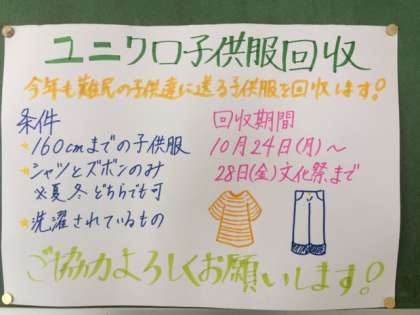 ユニクロ子供服回収
今年も難民の子供達に送る子供服を回収します!
条件
★160cmまでの子供服
★シャツとズボンのみ
※夏冬どちらでも可
★洗濯されているもの
回収期間
10月24日(月)〜
28日(金)文化祭まで
ご協力よろしくお願いします!